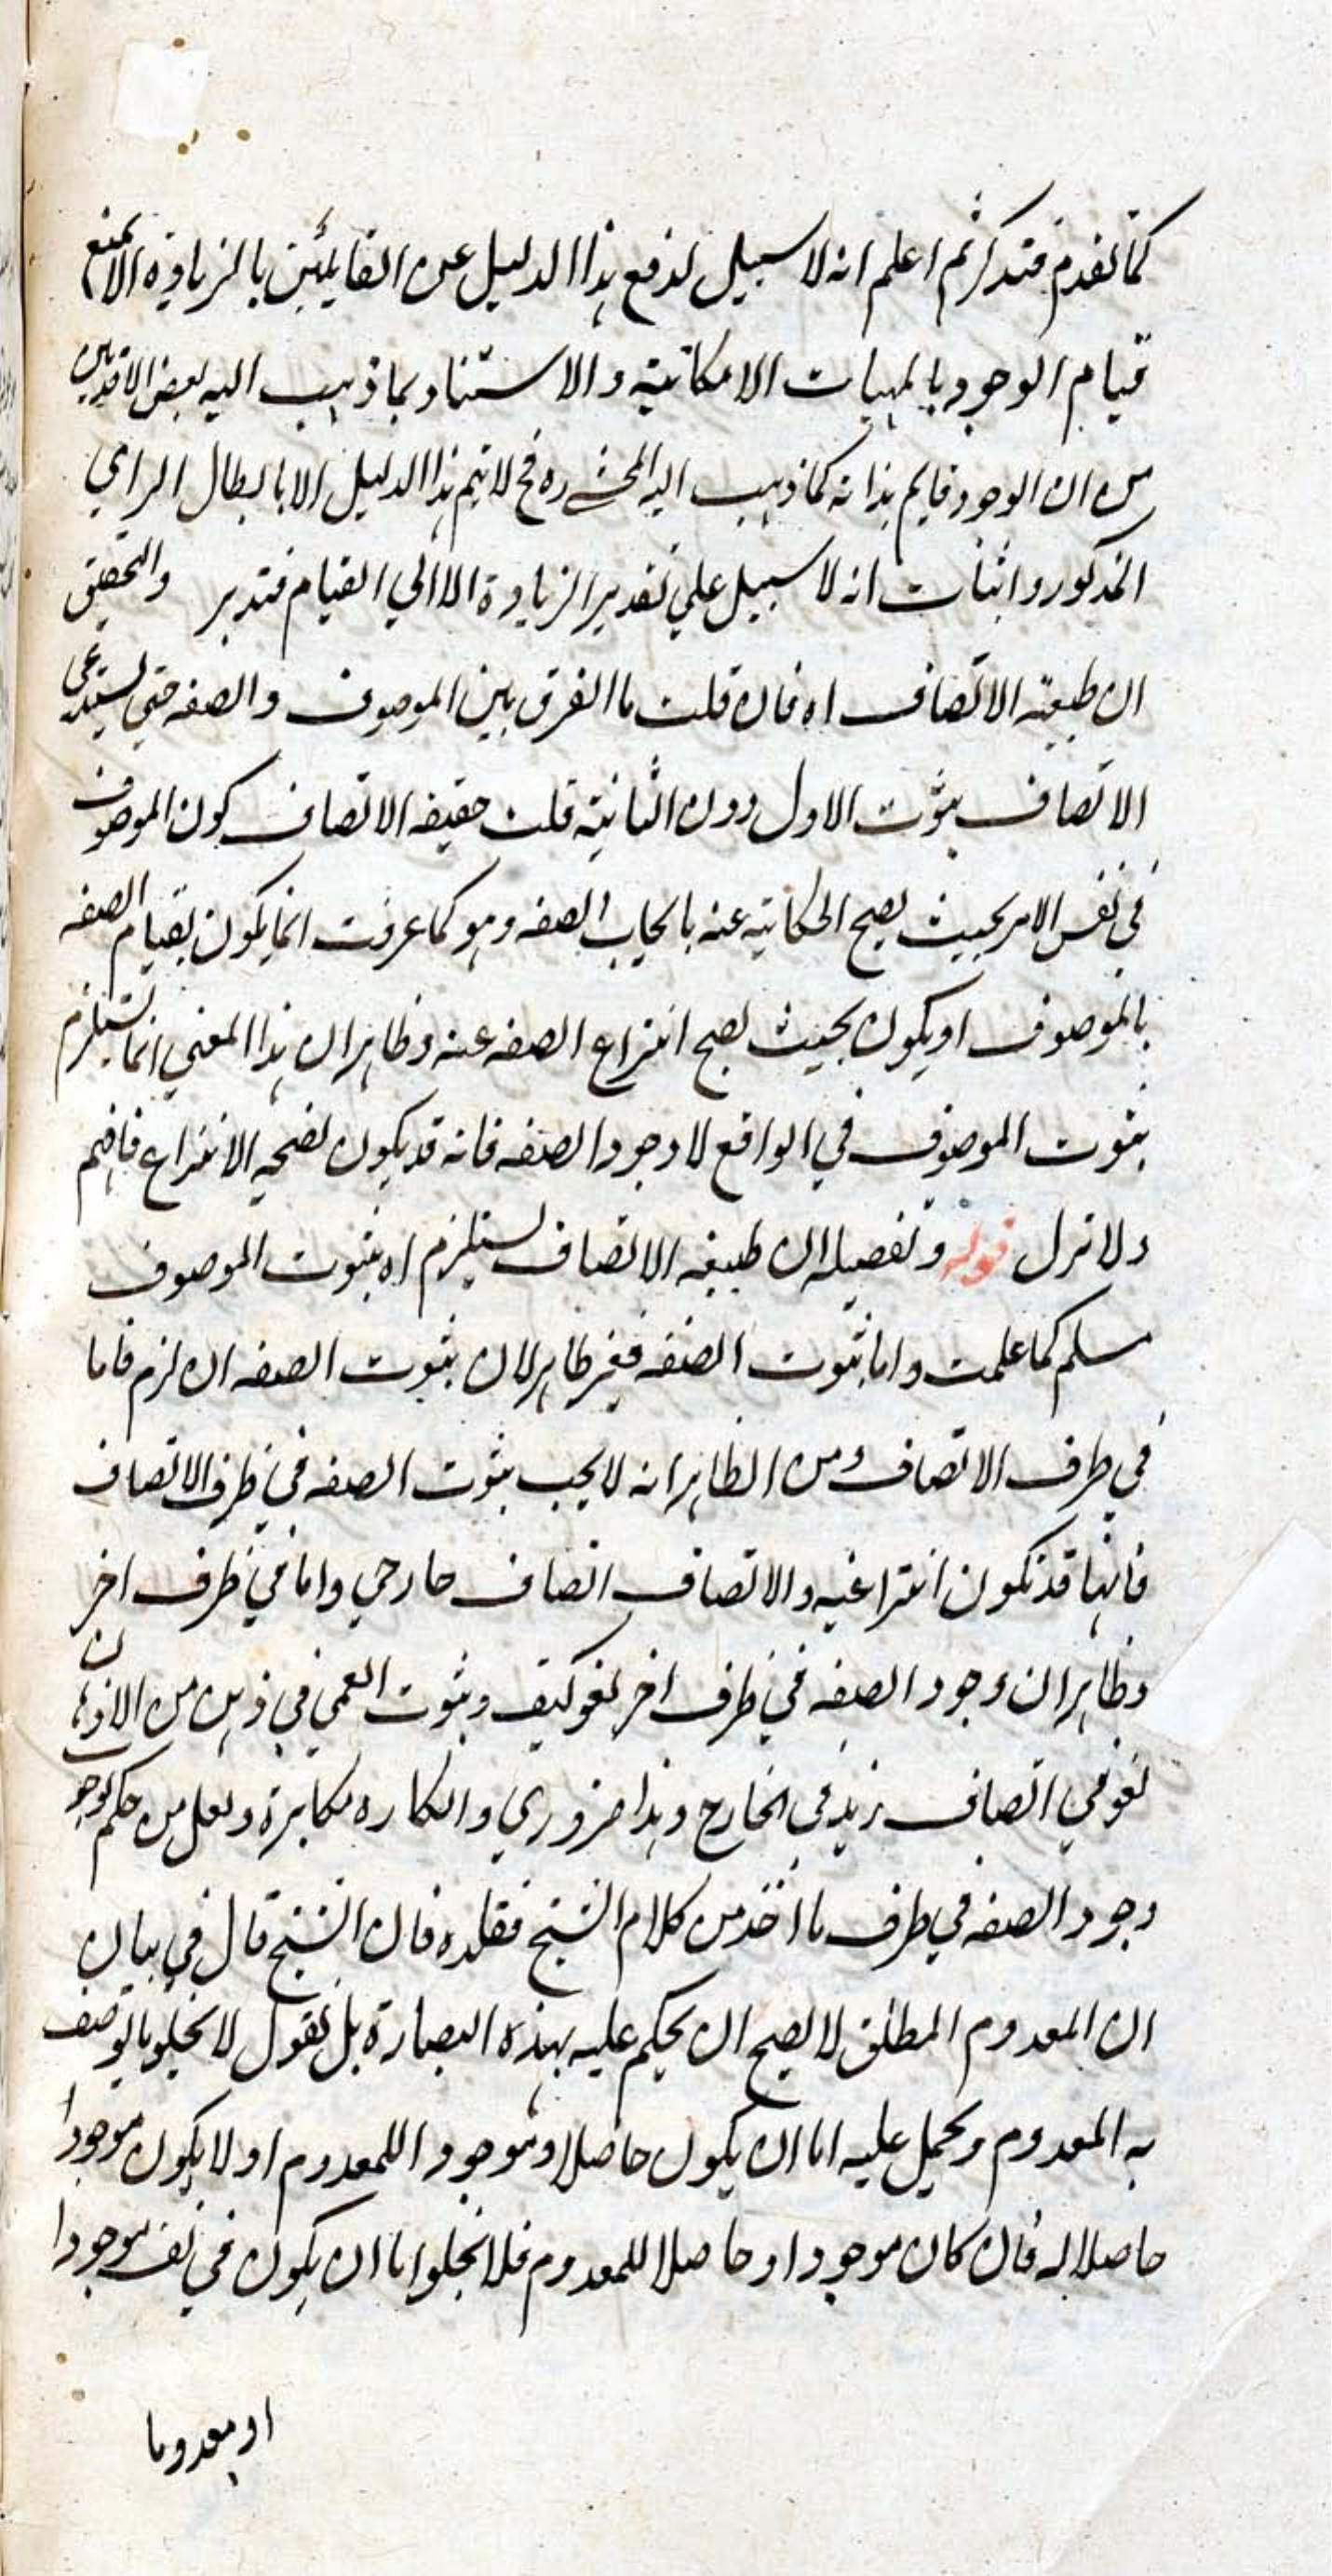 كما تقدم فتذكر ثم اعلم انه لا سبيل لدفع هذا الدليل عن القائلين بالزيادة الا بمنع
قيام الوجود بالمهيات الامكانية والاستناد بما ذهب اليه بعض الاقدمين
من ان الوجود قايم بذاته كما ذهب اليه المحشي ره فح لا يتم هذا الدليل الا بابطال الراي
المذكور واثبات انه لا سبيل علي تقدير الزيادة الا الي القيام فتدبر والتحقيق
ان طبيعة الاتصاف اه فان قلت ما الفرق بين الموصوف والصفه حتي يستدعي
الاتصاف ثبوت الاول دون الثانية قلت حقيقه الاتصاف كون الموصوف
في نفس الامر بحيث يصح الحكاية عنه بايجاب الصفه وهو كما عرفت انما يكون بقيام الصفه
بالموصوف او يكون بحيث يصح انتزاع الصفه عنه وظاهر ان هذا المعني انما يستلزم
ثبوت الموصوف في الواقع لا وجود الصفه فانه قد يكون لصحه الانتزاع فافهم
ولا تزل قوله وتفصيله ان طبيعه الاتصاف يستلزم اه ثبوت الموصوف
مسلم كما علمت واما ثبوت الصفه فغير ظاهر لان ثبوت الصفه ان لزم فاما
في ظرف الاتصاف ومن الظاهر انه لا يجب ثبوت الصفه في ظرف الاتصاف
فانها قد تكون انتزاعيه والاتصاف اتصاف خارجي واما في ظرف اخر
وظاهر ان وجود الصفه في ظرف اخر لغو كيف وثبوت العمي في ذهن من الاذهان
لغو في اتصاف زيد في الخارج وهذا ضروري وانكاره مكابرة ولعل من حكم بوجوب
وجود الصفه في ظرف ما اخذ من كلام الشيخ فقلده فان الشيخ قال في بيان
ان المعدوم المطلق لا يصح ان يحكم عليه بهذه العبارة بل نقول لا يخلو ما يوصف
به المعدوم ويحمل عليه اما ان يكون حاصلا وموجودا للمعدوم او لا يكون موجودا
حاصلا له فان كان موجودا وحاصلا للمعدوم فلا يخلوا اما ان يكون في نفسه موجودا
او معدوما